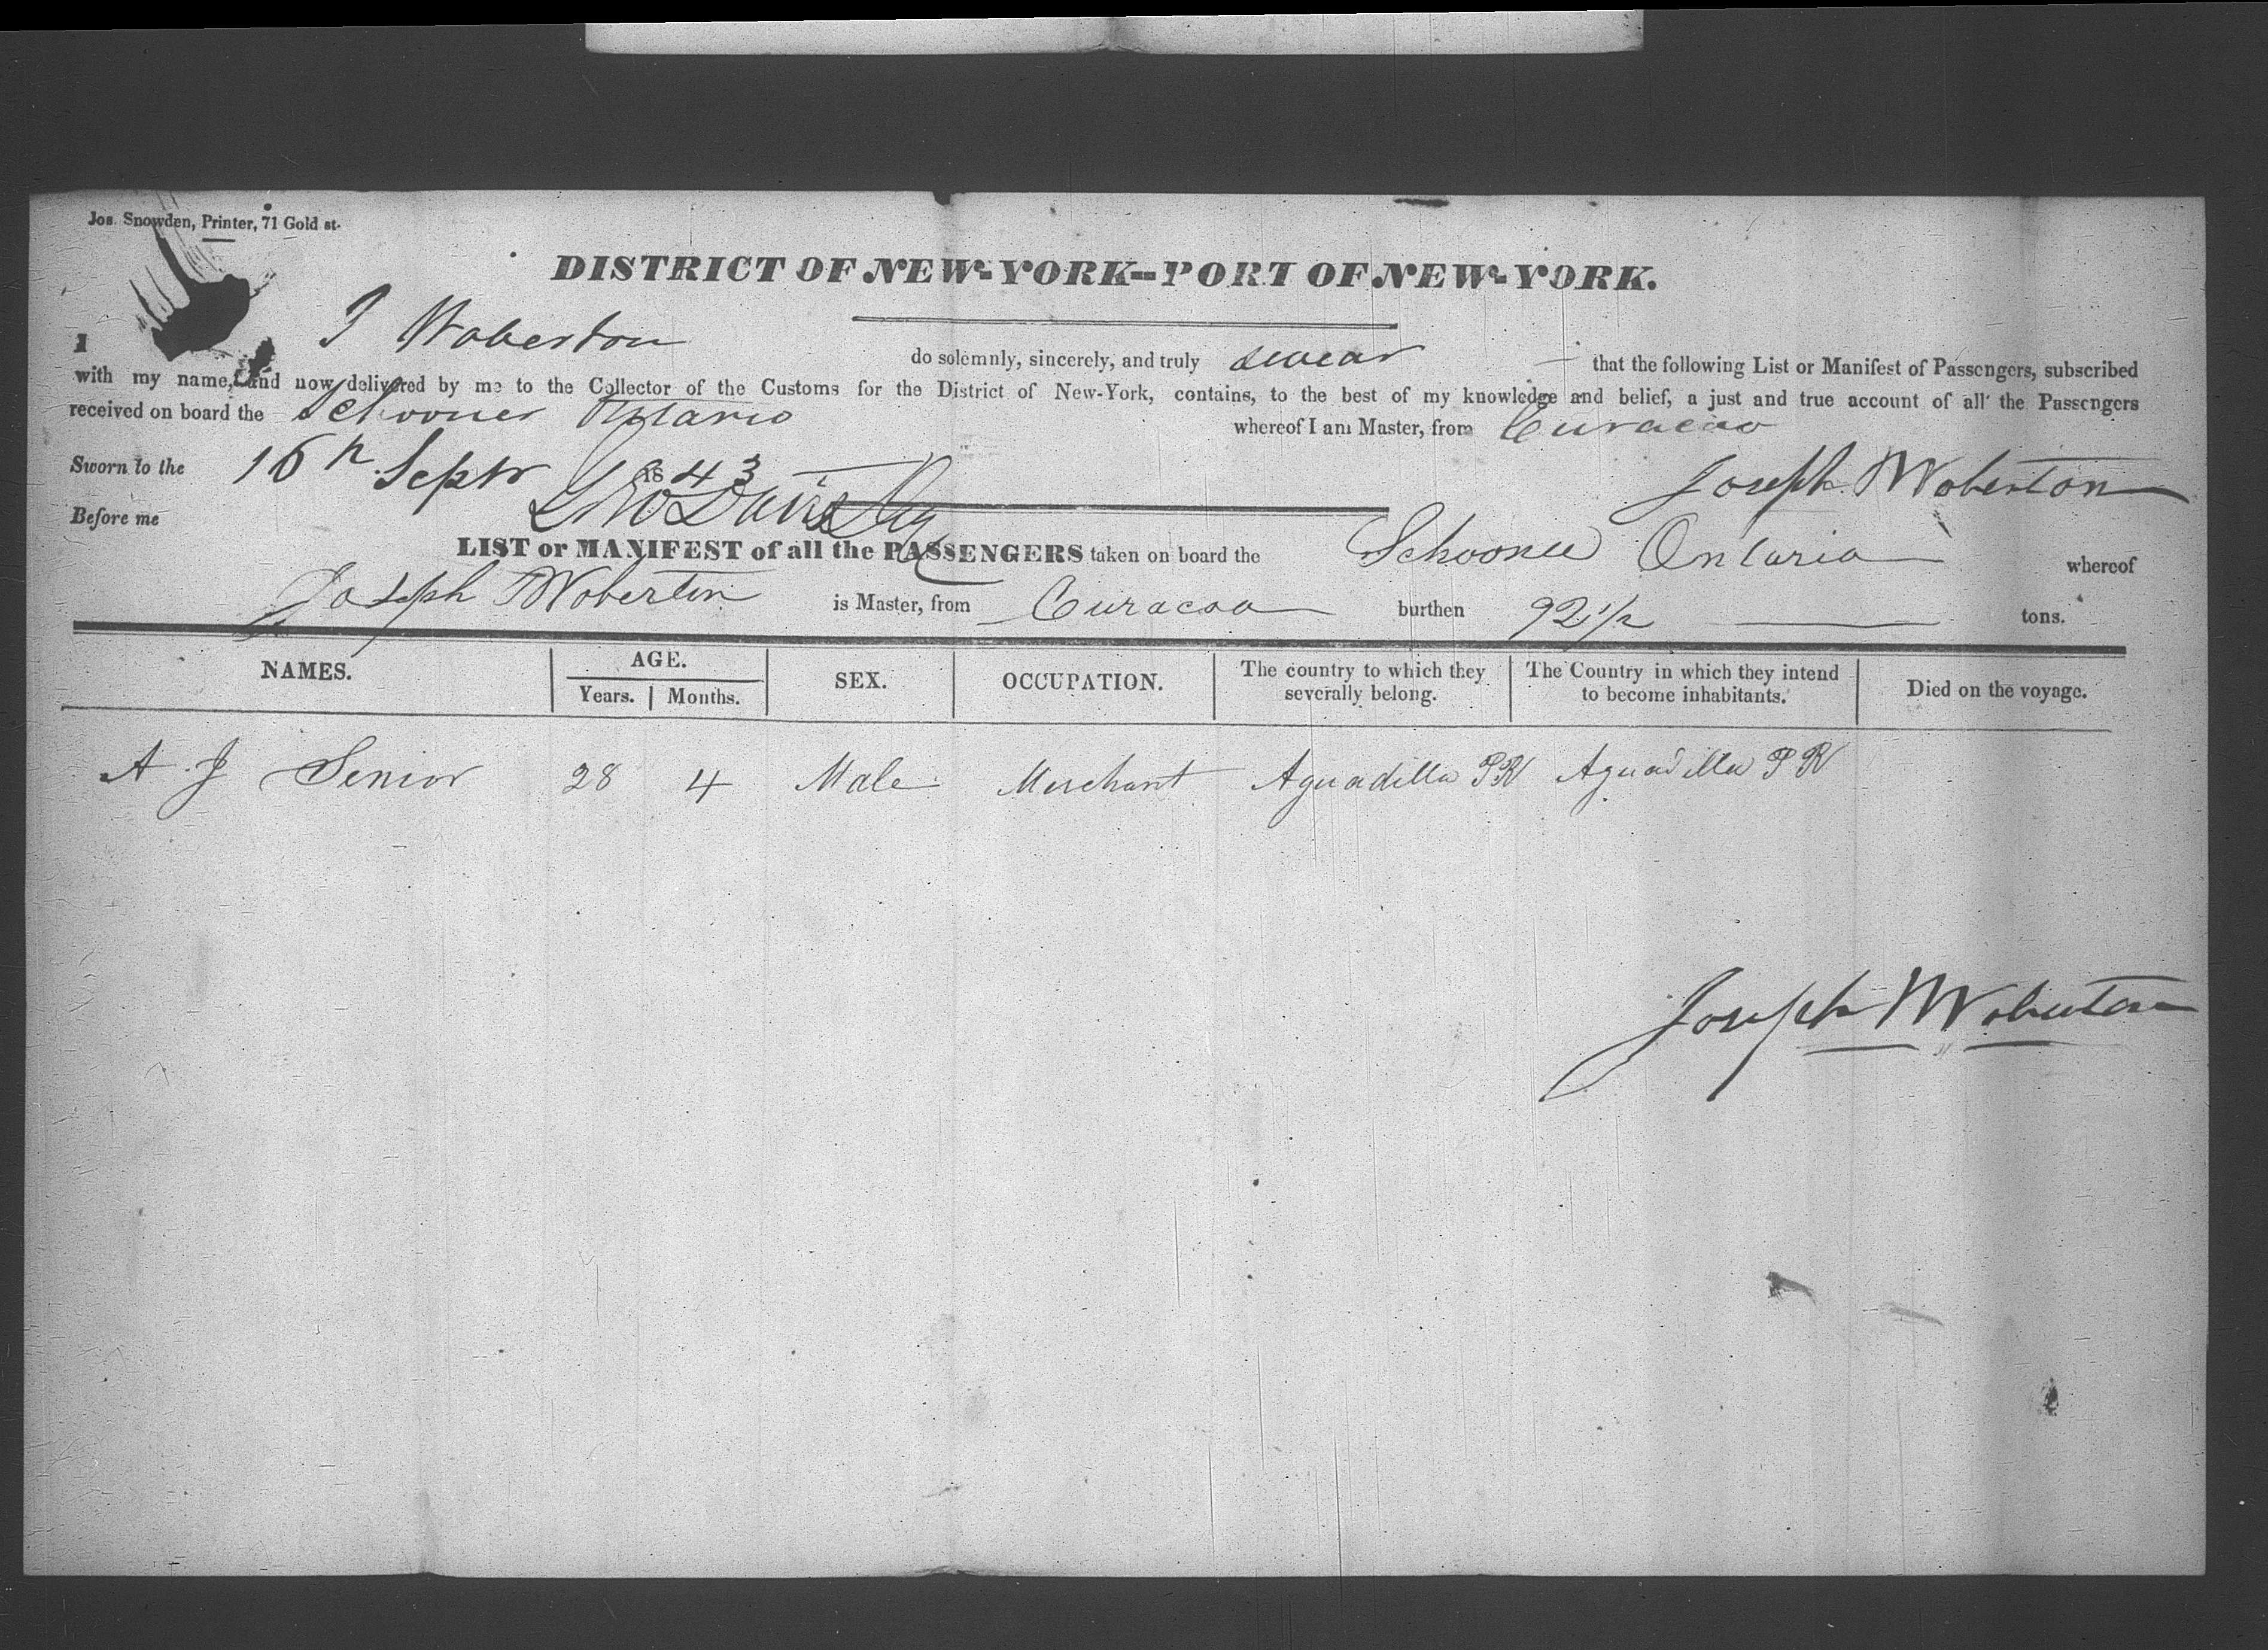 Jos. Snowden, Printer, 71 Gold st.
DISTRICT OF NEW-YORK--PORT OF NEW-YORK.
I J Woberton do solemnly, sincerely, and truly swear that the following List or Manifest of Passengers, subscribed
with my name, and now delivered by me to the Collector of the Customs for the District of New-York, contains, to the best of my knowledge and belief, a just and true account of all the Passengers
received on board the Schooner Ontario whereof I am Master, from Curacao
Sworn to the 16th Septr 1843 Joseph Woberton
Before me
LIST or MANIFEST of all the PASSENGERS taken on board the Schooner Ontario whereof
Joseph Woberton is Master, from Curacoa burthen 92 1/2 tons.
NAMES. AGE. Years. Months. SEX. OCCUPATION. The country to which they severally belong. The Country in which they intend to become inhabitants. Died on the voyage.
A J Senior 28 4 Male Merchant Aguadilla PR Aguadilla PR
Joseph Woberton